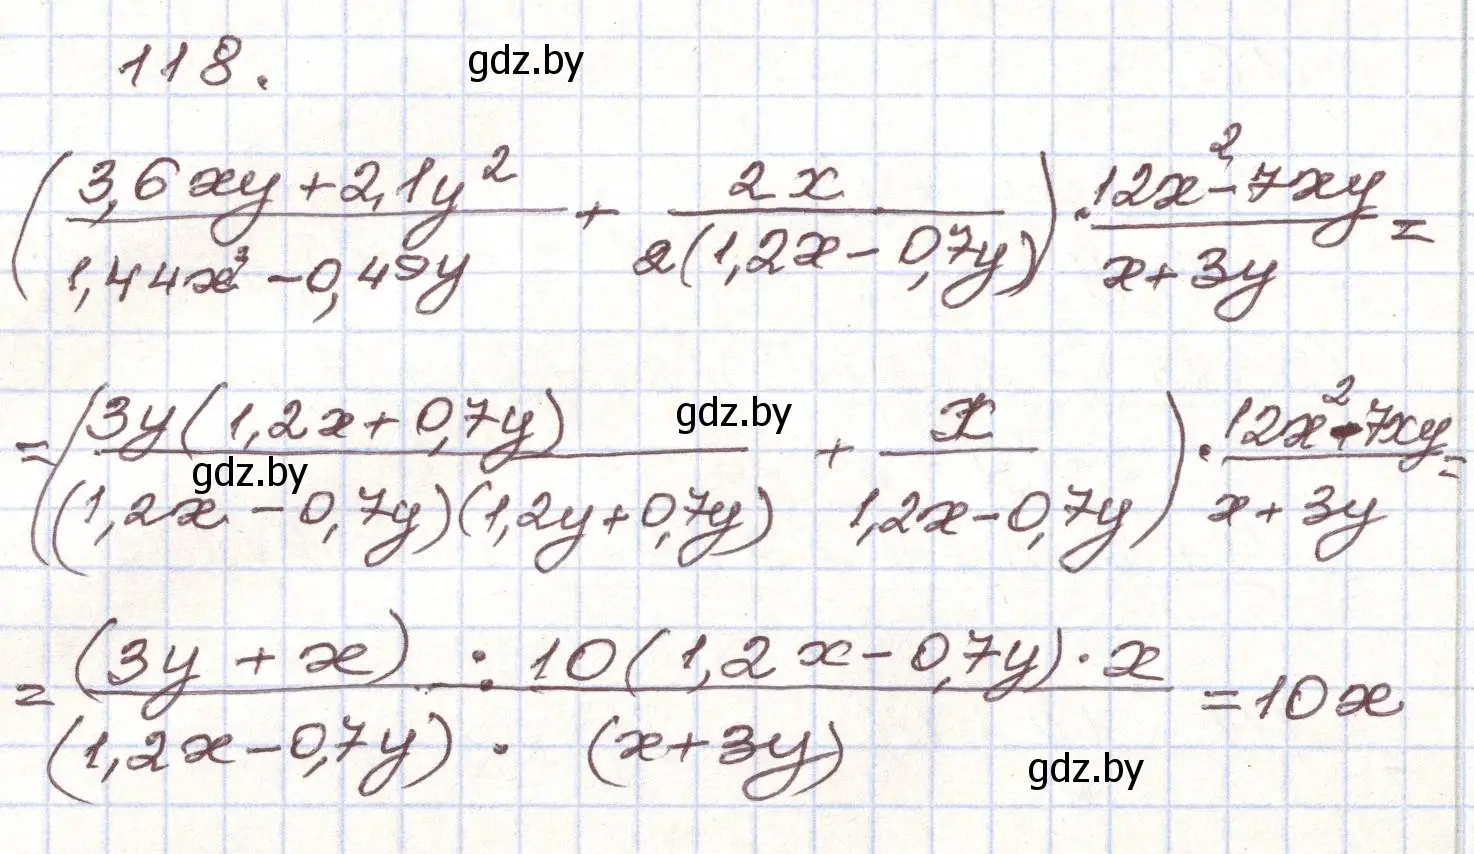 118. gdz.by
(3,6xy+2,1y²/1,44x³-0,49y + 2x/2(1,2x-0,7y)) · 12x²-7xy/x+3y =
= (3y(1,2x+0,7y)/(1,2x-0,7y)(1,2y+0,7y) + x/1,2x-0,7y) · 12x²-7xy/x+3y =
gdz.by
gdz.by
= (3y+x) · 10(1,2x-0,7y)·x/(1,2x-0,7y) · (x+3y) = 10x
gdz.by